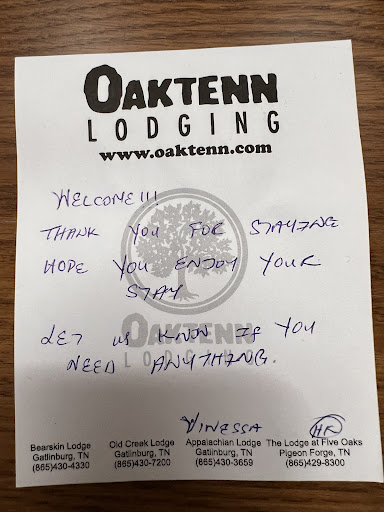 OAKTENN
LODGING
www.oaktenn.com
WELCOME!!!
THANK YOU FOR STAYING
HOPE YOU ENJOY YOUR
STAY
LET us KNOW IF YOU
NEED ANYTHING.
OAKTENN
LODGING
VINESSA
Bearskin Lodge
Gatlinburg, TN
(865)430-4330
Old Creek Lodge
Gatlinburg, TN
(865)430-7200
Appalachian Lodge
Gatlinburg, TN
(865)430-3659
The Lodge at Five Oaks
Pigeon Forge, TN
(865)429-8300